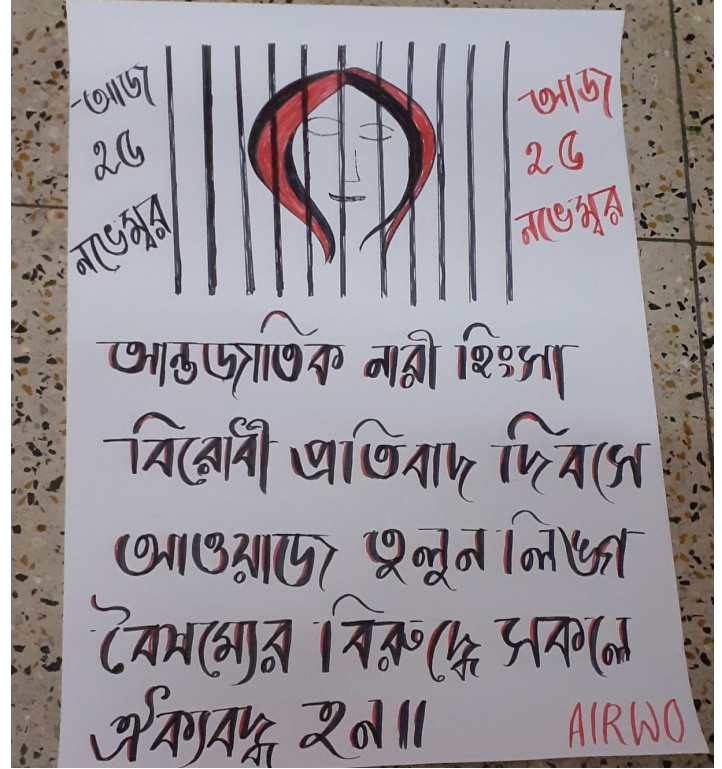 আজ
২৫
নভেম্বর
আজ
২৫
নভেম্বর
আন্তজাতিক নারী হিংসা
বিরোধী প্রতিবাদ দিবসে
আওয়াজ তুলুন লিঙ্গ
বৈষম্যের বিরুদ্ধে সকলে
ঐক্যবদ্ধ হন॥
AIRWO